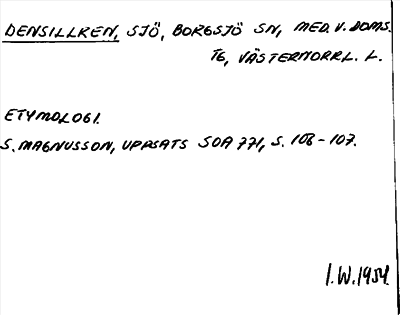 DENSILLREN, SJÖ, BORGSJÖ SN, MED. V. DOMS.
TG, VÄSTERNORRL. L.
ETYMOLOGI.
S. MAGNUSSON, UPPSATS SOA 771, S. 106-107.
I.W. 1954.